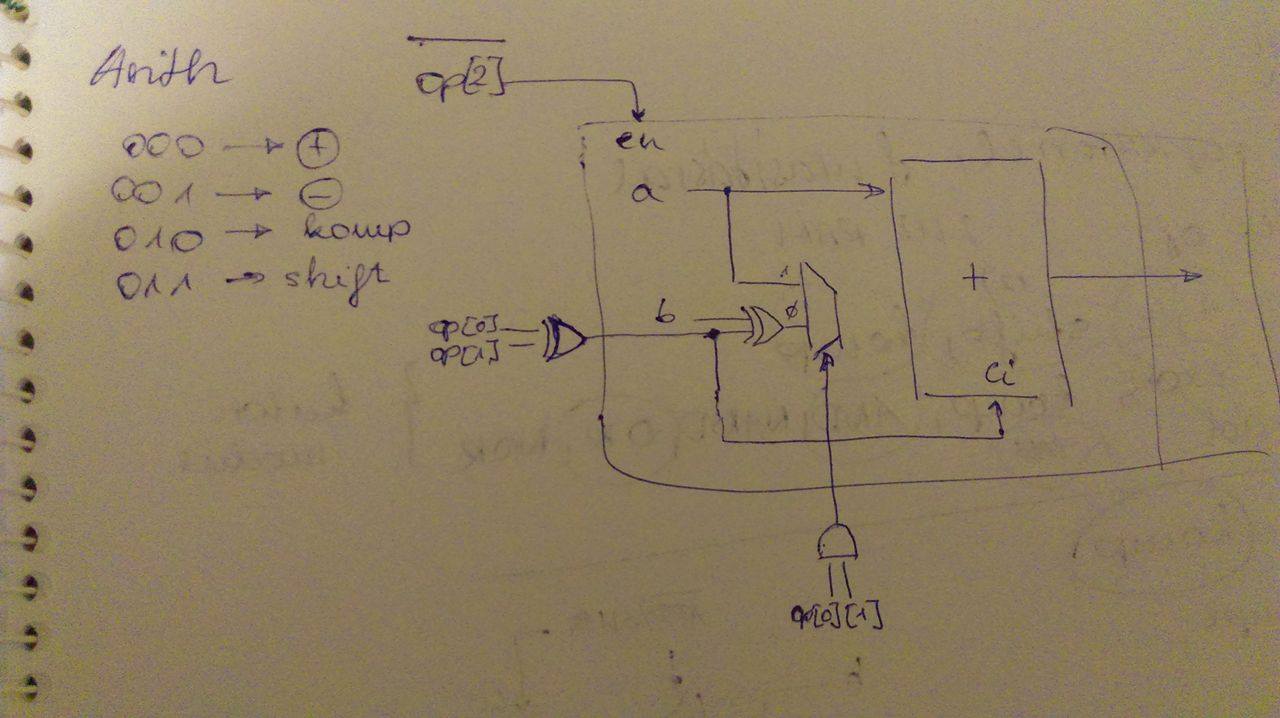 Arith
000 → ⊕
001 → ⊖
010 → komp
011 → shift
op[2]
en
a
1
b
0
op[0]
op[1]
+
ci
op[0][1]